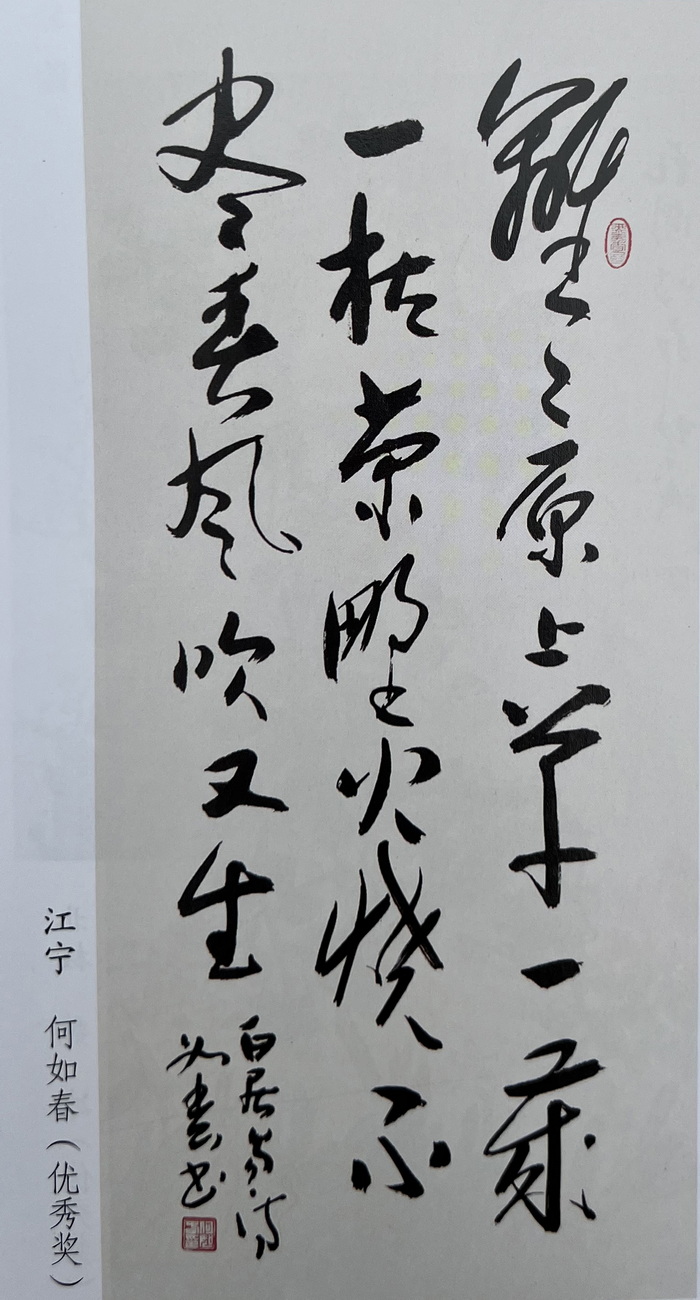 離〻原上草一歲
一枯荣野火烧不
尽春风吹又生
白居易诗
如春书
江宁 何如春（优秀奖）